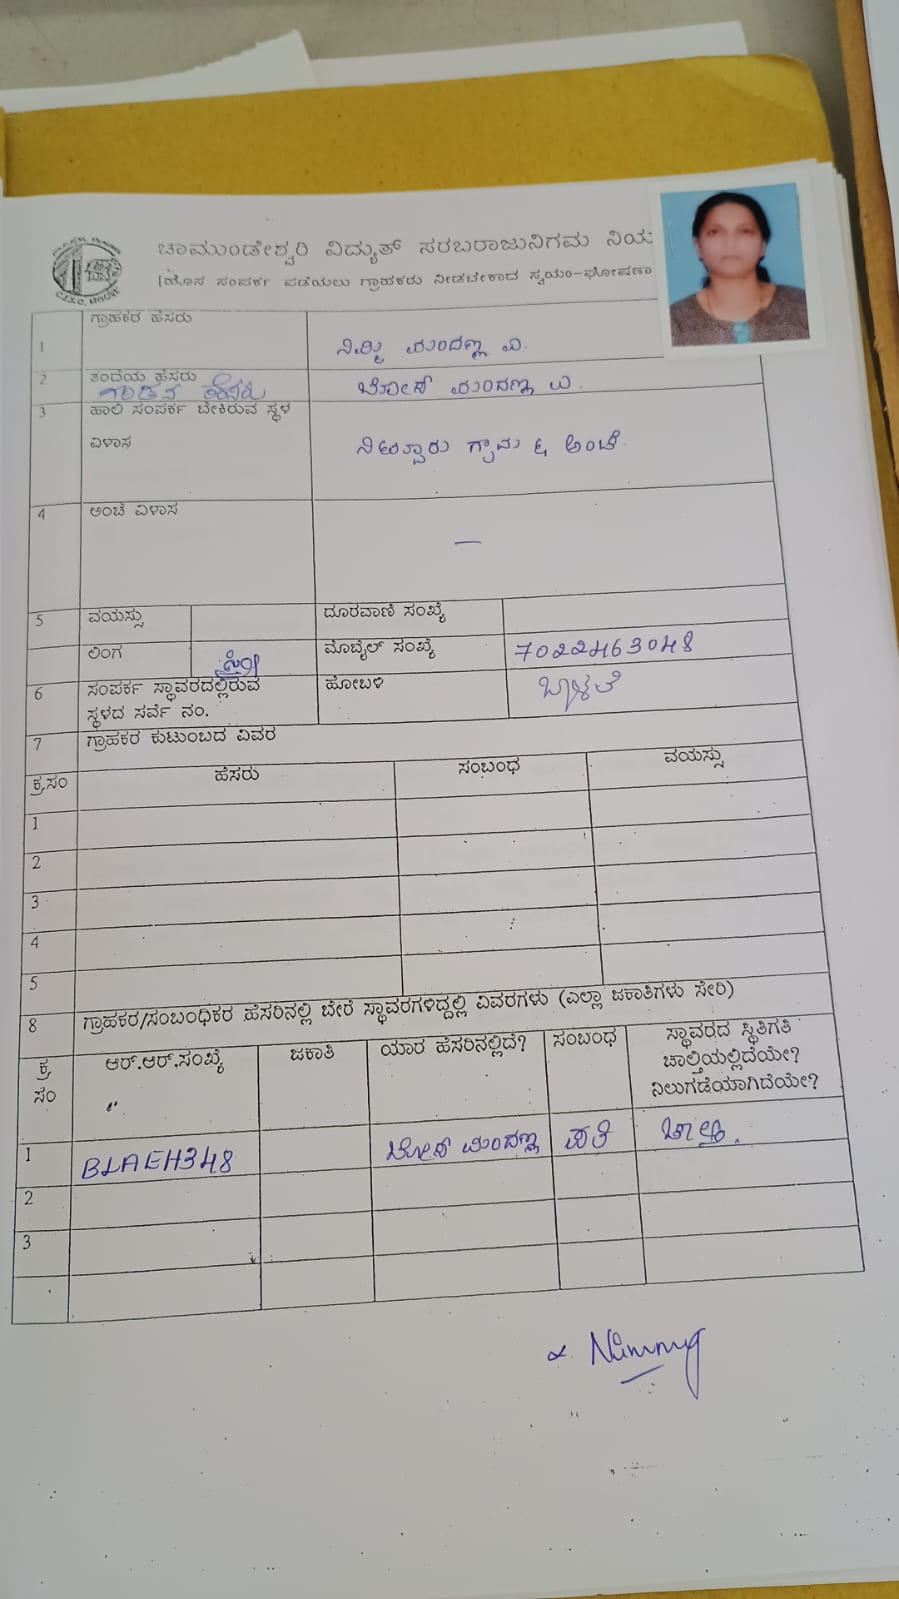 ಚಾಮುಂಡೇಶ್ವರಿ ವಿದ್ಯುತ್ ಸರಬರಾಜುನಿಗಮ ನಿಯ
(ಹೊಸ ಸಂಪರ್ಕ ಪಡೆಯಲು ಗ್ರಾಹಕರು ನೀಡಬೇಕಾದ ಸ್ವಯಂ-ಘೋಷಣಾ
1 ಗ್ರಾಹಕರ ಹೆಸರು ನಿಮ್ಮಿ ಮಂದಣ್ಣ ಎ.
2 ತಂದೆಯ ಹೆಸರು
ಗಂಡನ ಹೆಸರು ಬೋಸ್ ಮಂದಣ್ಣ ಎ.
3 ಹಾಲಿ ಸಂಪರ್ಕ ಬೇಕಿರುವ ಸ್ಥಳ
ವಿಳಾಸ ಗ್ರಾಮ & ಅಂಚೆ.
4 ಅಂಚೆ ವಿಳಾಸ —
5 ವಯಸ್ಸು ದೂರವಾಣಿ ಸಂಖ್ಯೆ
ಲಿಂಗ ಸ್ತ್ರೀ ಮೊಬೈಲ್ ಸಂಖ್ಯೆ 7022463048
6 ಸಂಪರ್ಕ ಸ್ಥಾವರದಲ್ಲಿರುವ ಹೋಬಳಿ
ಸ್ಥಳದ ಸರ್ವೆ ನಂ.
7 ಗ್ರಾಹಕರ ಕುಟುಂಬದ ವಿವರ
ಕ್ರ.ಸಂ ಹೆಸರು ಸಂಬಂಧ ವಯಸ್ಸು
1
2
3
4
5
8 ಗ್ರಾಹಕರ/ಸಂಬಂಧಿಕರ ಹೆಸರಿನಲ್ಲಿ ಬೇರೆ ಸ್ಥಾವರಗಳಿದ್ದಲ್ಲಿ ವಿವರಗಳು (ಎಲ್ಲಾ ಜಕಾತಿಗಳು ಸೇರಿ)
ಕ್ರ ಆರ್.ಆರ್.ಸಂಖ್ಯೆ ಜಕಾತಿ ಯಾರ ಹೆಸರಿನಲ್ಲಿದೆ? ಸಂಬಂಧ ಸ್ಥಾವರದ ಸ್ಥಿತಿಗತಿ
ಸಂ ಚಾಲ್ತಿಯಲ್ಲಿದೆಯೇ?
ನಿಲುಗಡೆಯಾಗಿದೆಯೇ?
1 BLAEH348 ಬೋಸ್ ಮಂದಣ್ಣ ಪತಿ ಚಾಲ್ತಿ.
2
3
Nimmy